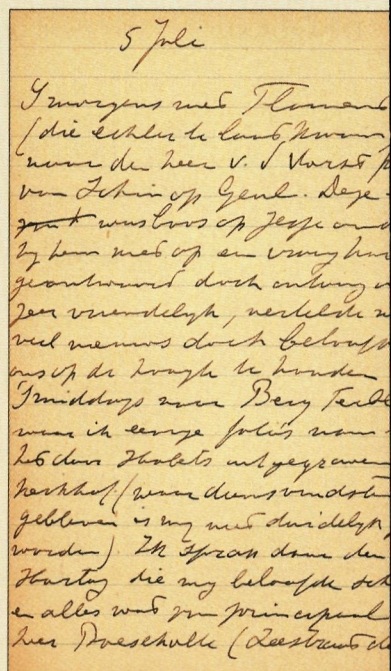 5 Juli
'S morgens met Timmers
(die echter te laat kwam
naar den heer v. d Vorst
van Schin op Geul. Deze
was boos op Jesse omd
hy hem niet op een vraag had
geantwoord doch ontving o
zeer vriendelyk, vertelde n
veel nieuws doch beloofde
ons op de hoogte te houden
'S middags naar Berg Terbl
waar ik eenige foto's nam
het door Habets uitgegraven
kerkhof (waar diens vondsten
gebleven is my niet duidelyk
worden). Ik sprak daar den
Hartog die my beloofde
en alles wat van principaal
heer Boescholte (Zeestraat d